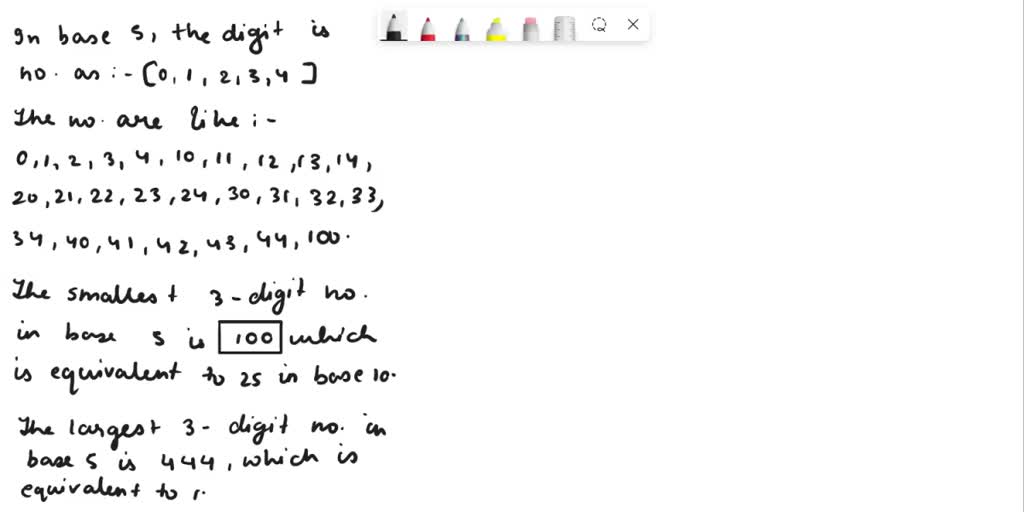 In base 5, the digit is
no. as :- [0, 1, 2, 3, 4]
The no. are like :-
0, 1, 2, 3, 4, 10, 11, 12, 13, 14,
20, 21, 22, 23, 24, 30, 31, 32, 33,
34, 40, 41, 42, 43, 44, 100.
The smallest 3-digit no.
in base 5 is 100 which
is equivalent to 25 in base 10.
The largest 3-digit no. in
base 5 is 444, which is
equivalent to